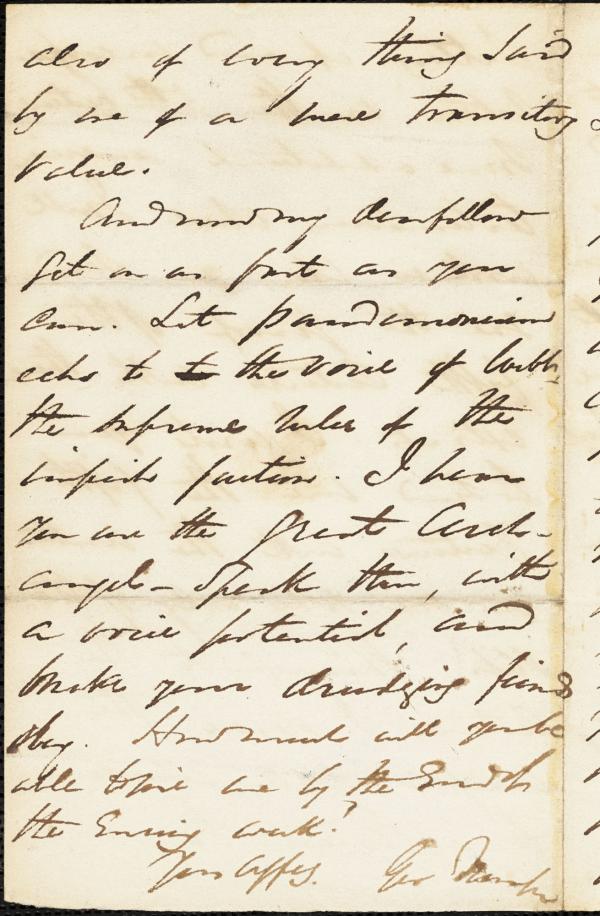 also of every thing said
by me of a mere transitory
value.
And now my dear fellow
get on as fast as you
can. Let pandemonium
echo to the voice of
the supreme ruler of the
impish faction. I hear
you are the great Arch-
angel - Speak then, with
a voice potential, and
make your drudging fiends
obey. How much will you be
able to give me by the End of
the Ensuing week?
Yours affly. Geo Thompson